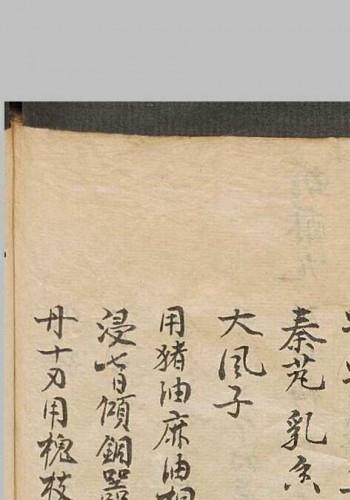 秦艽乳香
大風子
用猪油麻油桐
浸七日傾銅器
丹十刃用槐枝